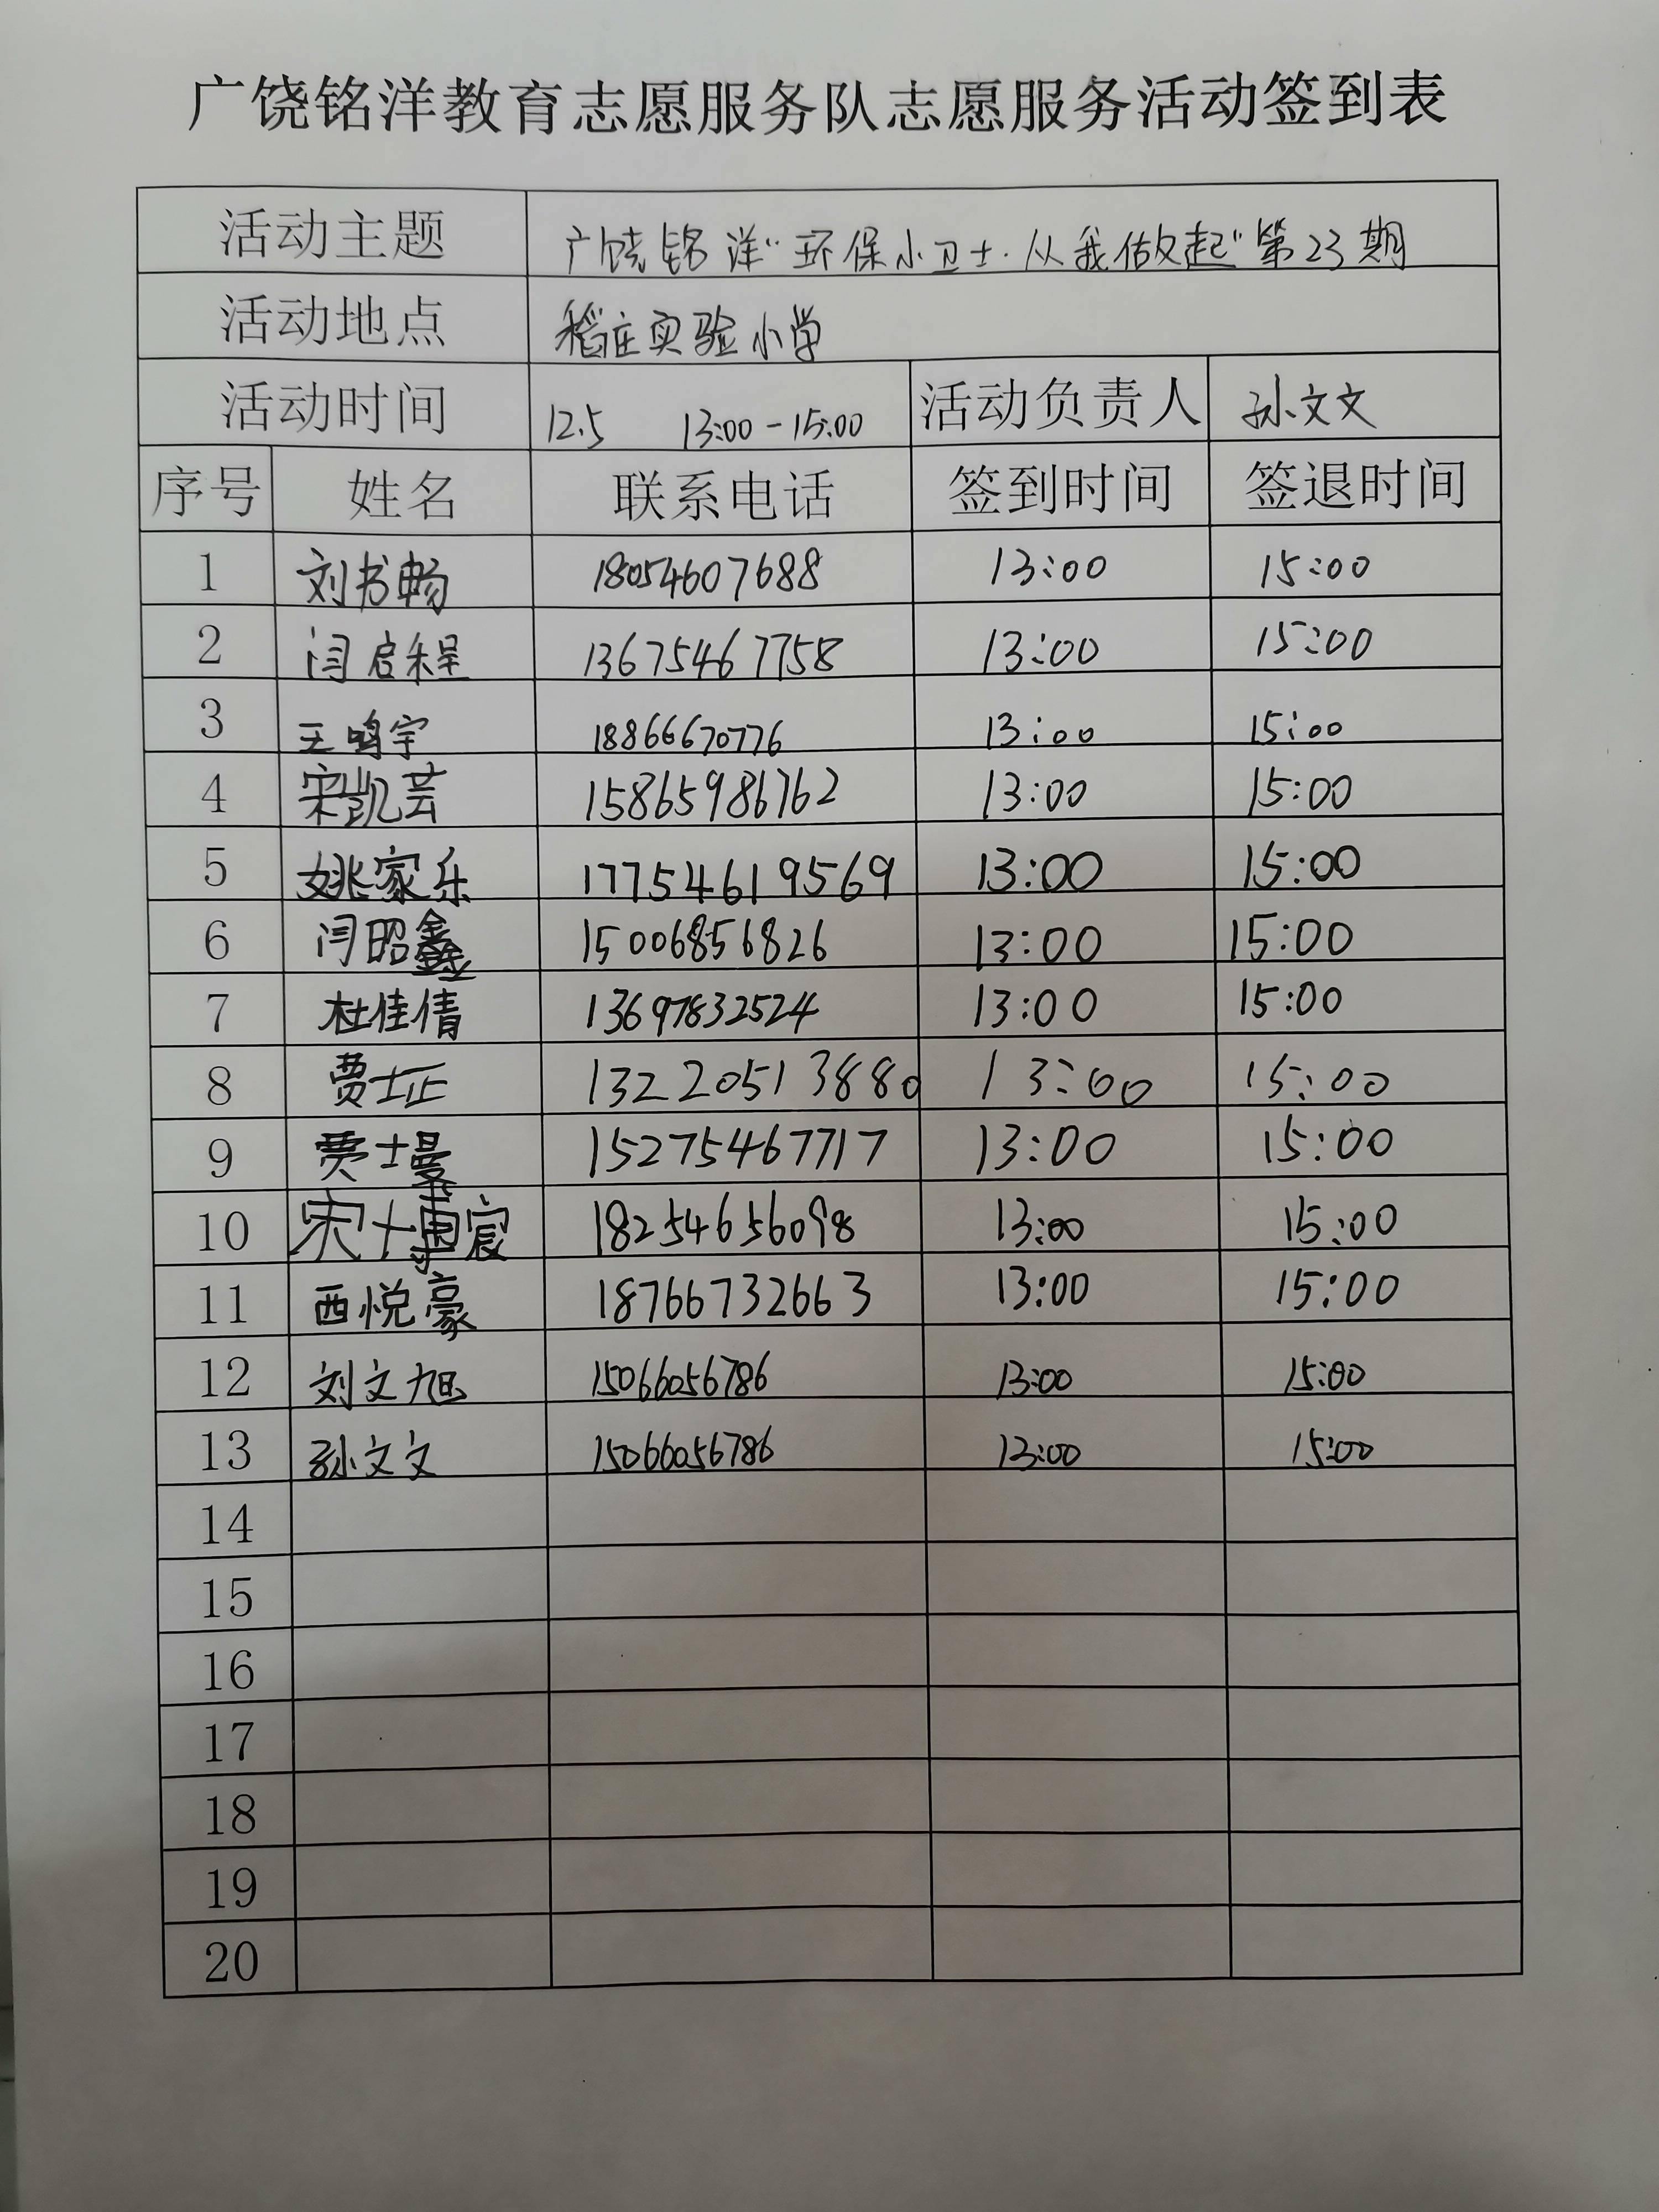 广饶铭洋教育志愿服务队志愿服务活动签到表
活动主题 广饶铭洋“环保小卫士·从我做起”第23期
活动地点 稻庄实验小学
活动时间 12.5 13:00-15:00 活动负责人 孙文文
序号 姓名 联系电话 签到时间 签退时间
1 刘书畅 18054607688 13:00 15:00
2 闫启程 13675467758 13:00 15:00
3 王鸣宇 18866670776 13:00 15:00
4 宋凯芸 15865986762 13:00 15:00
5 姚家乐 17754619569 13:00 15:00
6 闫昭鑫 15006856826 13:00 15:00
7 杜佳倩 13697832524 13:00 15:00
8 贾士正 13220513880 13:00 15:00
9 贾士曼 15275467717 13:00 15:00
10 宋博宸 18254656098 13:00 15:00
11 西悦豪 18766732663 13:00 15:00
12 刘文旭 15066056786 13:00 15:00
13 孙文文 15066056786 13:00 15:00
14
15
16
17
18
19
20